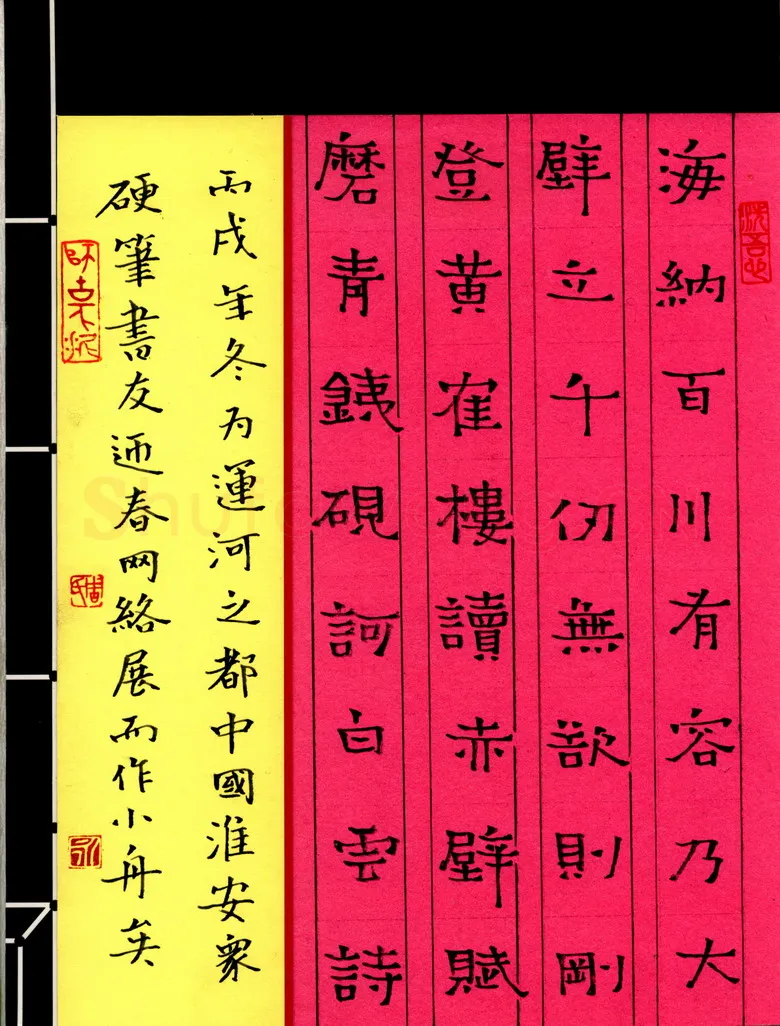 海納百川有容乃大
壁立千仞無欲則剛
登黄寉樓讀赤壁賦
磨青銕硯訶白雲詩
丙戌年冬为運河之都中國淮安衆
硬筆書友迎春网絡展而作小舟